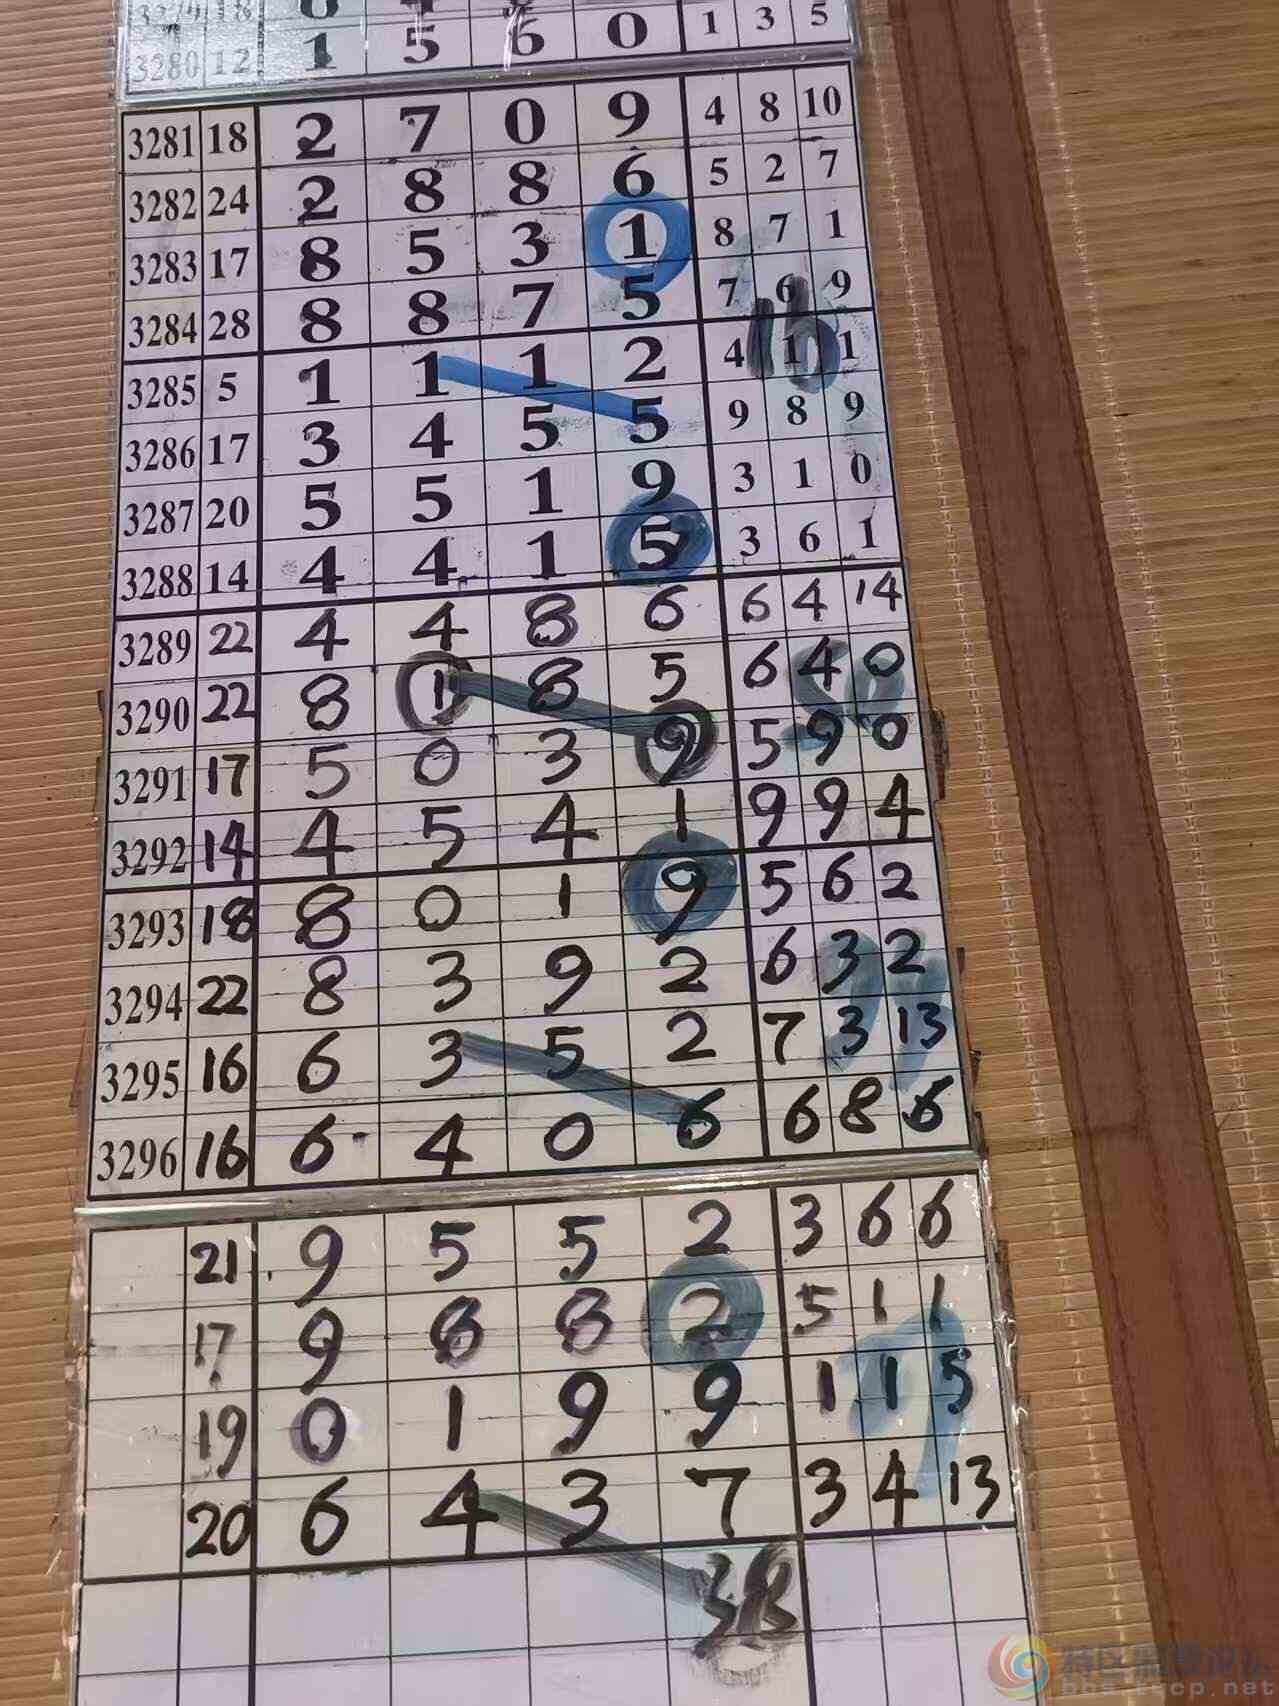 3279 18
3280 12 1 5 6 0 1 3 5
3281 18 2 7 0 9 4 8 10
3282 24 2 8 8 6 5 2 7
3283 17 8 5 3 1 8 7 1
3284 28 8 8 7 5 7 6 9
16
3285 5 1 1 1 2 4 1 1
3286 17 3 4 5 5 9 8 9
3287 20 5 5 1 9 3 1 0
3288 14 4 4 1 5 3 6 1
3289 22 4 4 8 6 6 4 14
3290 22 8 1 8 5 6 4 0
3291 17 5 0 3 9 5 9 0
3292 14 4 5 4 1 9 9 4
3293 18 8 0 1 9 5 6 2
3294 22 8 3 9 2 6 3 2
3295 16 6 3 5 2 7 3 13
3296 16 6 4 0 6 6 8 6
21 9 5 5 2 3 6 6
17 9 8 2 5 1 1
19 0 1 9 9 1 1 5
20 6 4 3 7 3 4 13
38
bbs.tccp.net